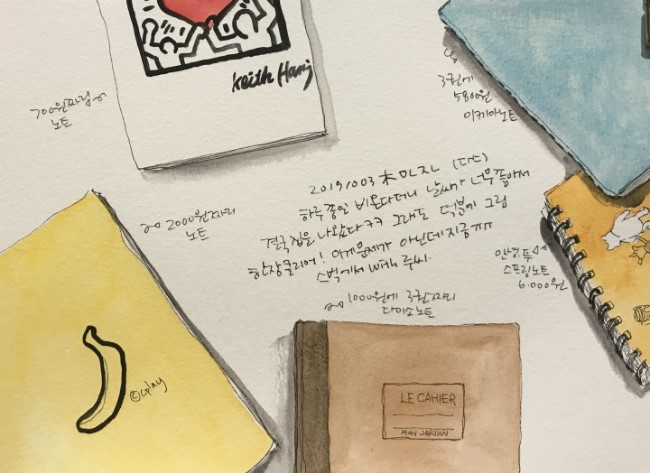 Keith Haring
700원짜리
노트
3권에
5800원
이케아노트
2000원짜리
노트
20191003 木 マスジ (다스)
하루종일 비온다더니 날씨가 너무좋아서
결국집을나왔다ㅋㅋ 그래도 덕분에 그림
한장클리어! 이게문제가 아닌데지금ㅠㅠ
스벅에서 with 루씨.
스프링노트
6.000원
1000원에 3권짜리
다이소노트
LE CAHIER
MON JARDIN
©play